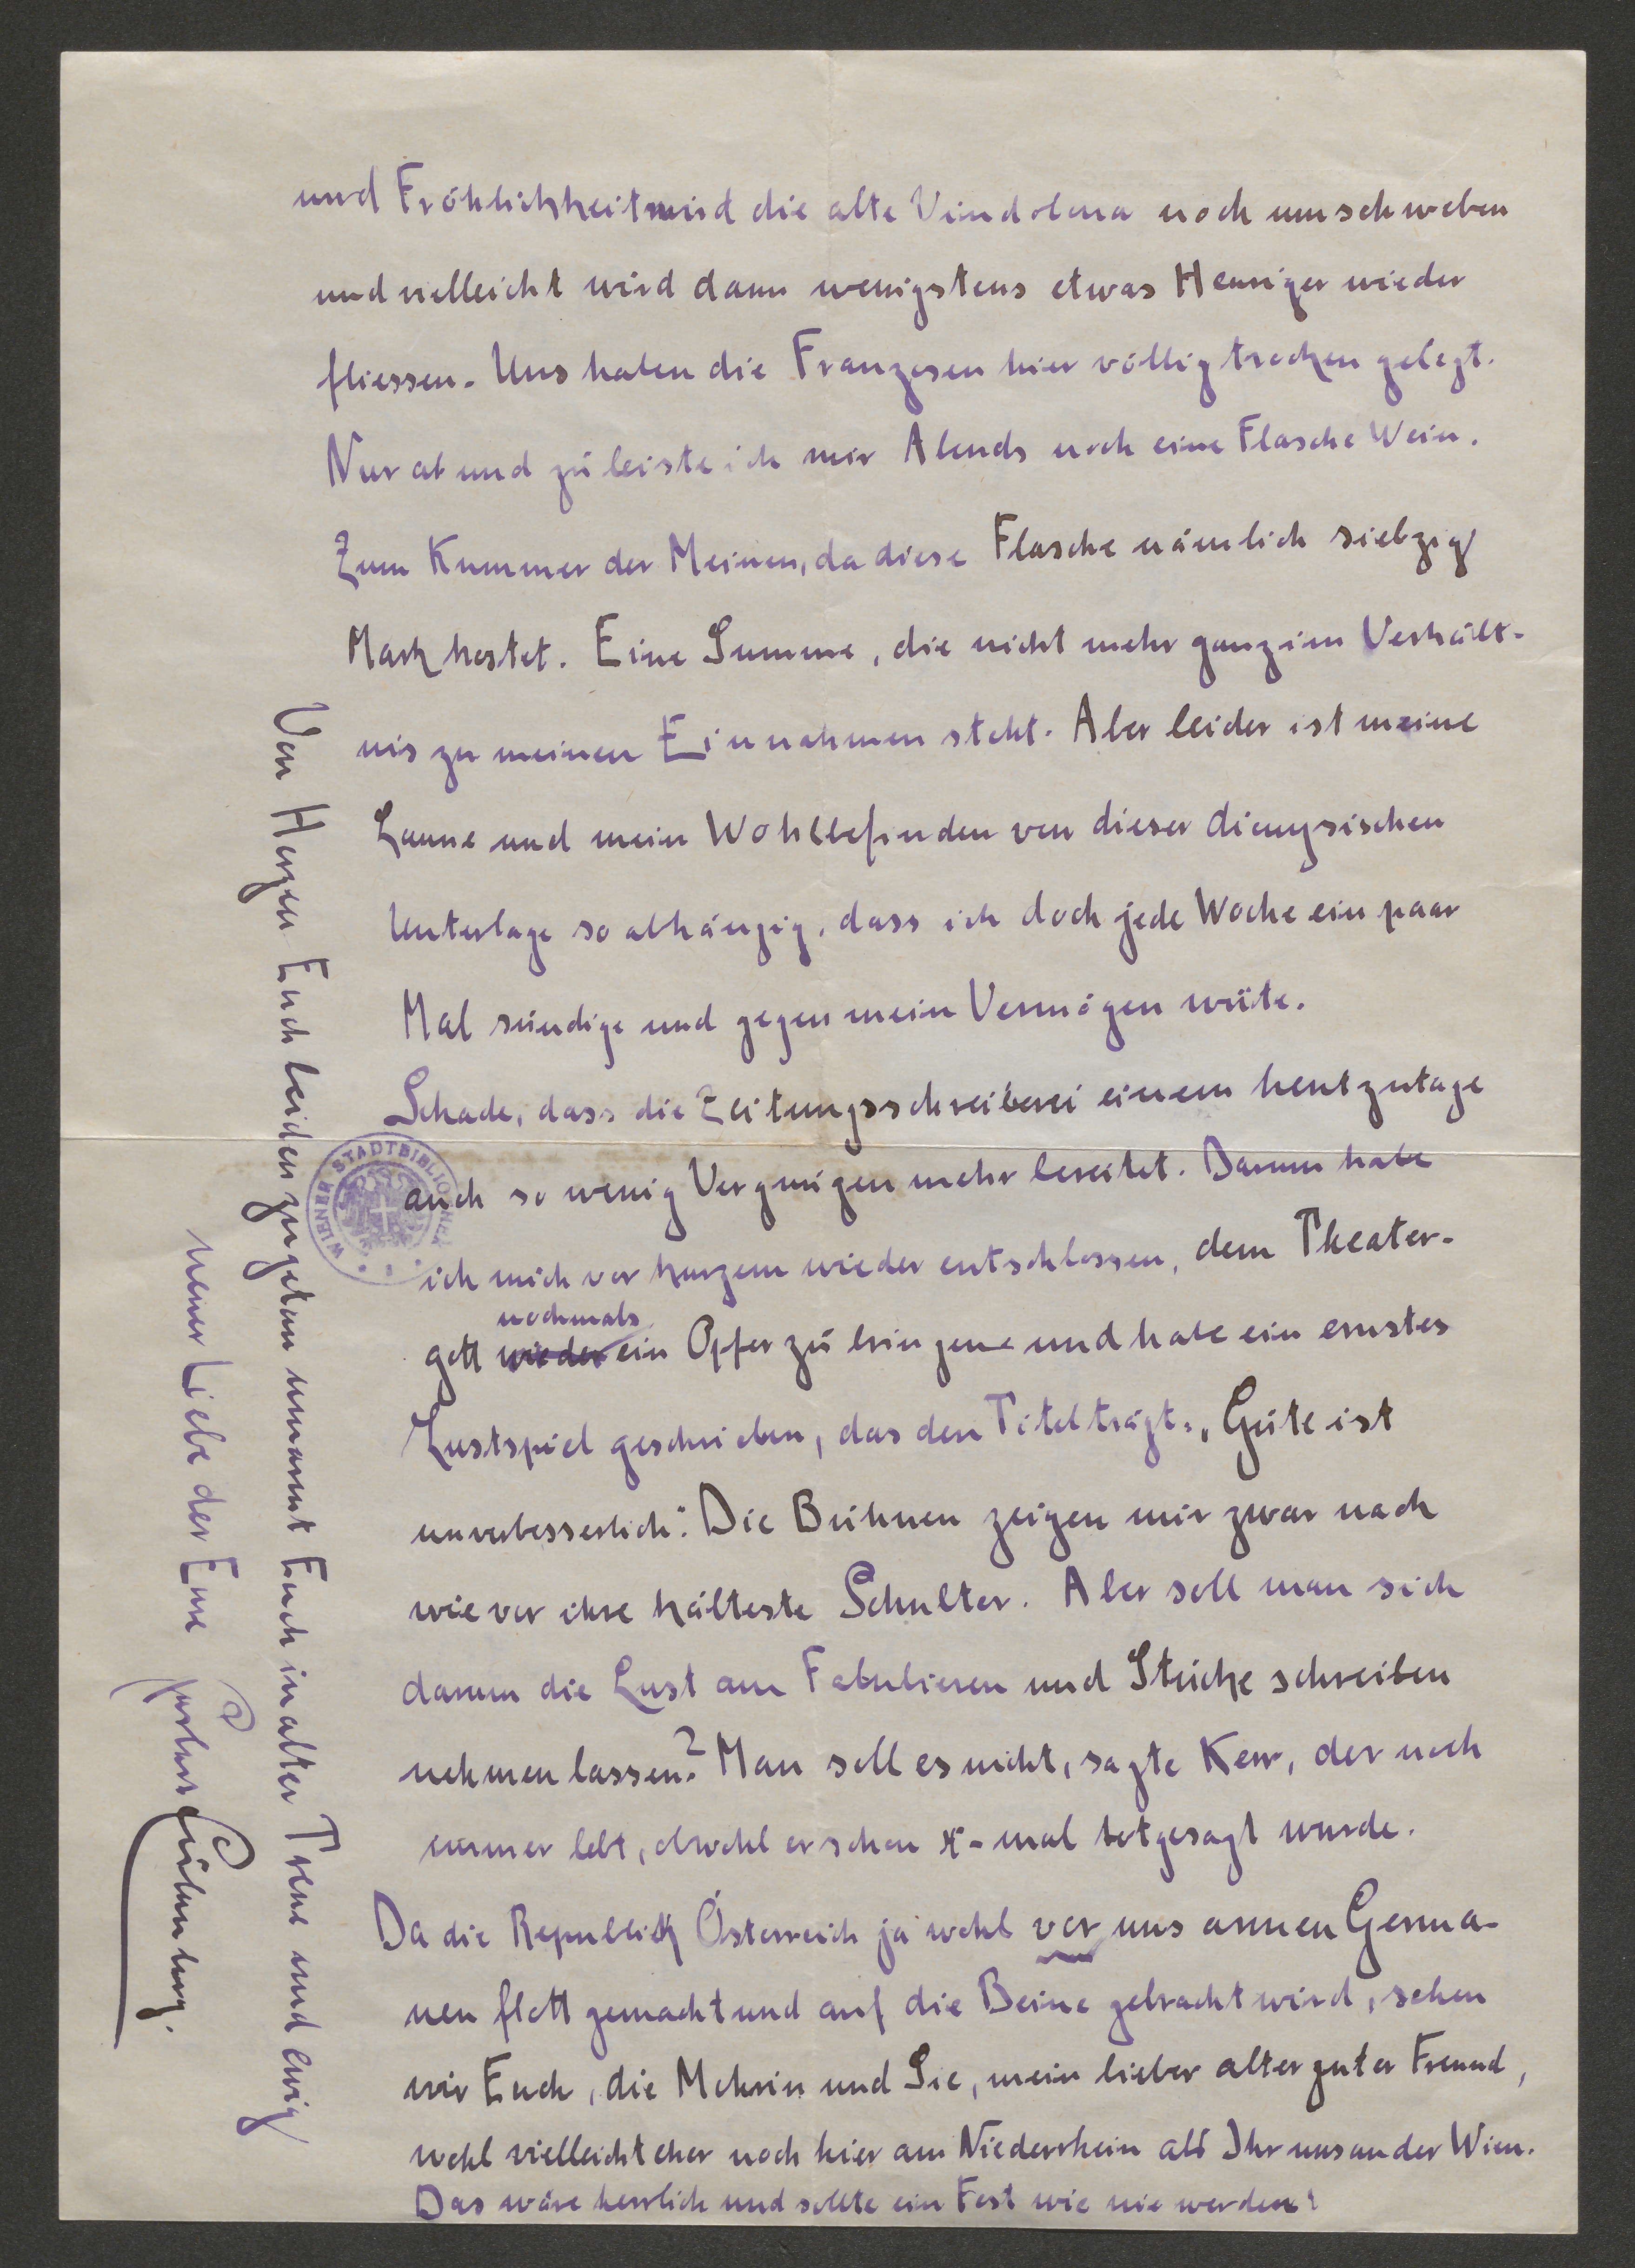 und Fröhlichkeit wird die alte Vindobona noch umschweben
und vielleicht wird dann wenigstens etwas Heuriger wieder
fliessen. Uns haben die Franzosen hier völlig trocken gelegt.
Nur ab und zu leiste ich mir Abends noch eine Flasche Wein.
Zum Kummer der Meinen, da diese Flasche nämlich siebzig
Mark kostet. Eine Summe, die nicht mehr ganz im Verhält-
nis zu meinen Einnahmen steht. Aber leider ist meine
Laune und mein Wohlbefinden von dieser dionysischen
Unterlage so abhängig, dass ich doch jede Woche ein paar
Mal sündige und gegen mein Vermögen wüte.
Schade, dass die Zeitungsschreiberei einem heutzutage
auch so wenig Vergnügen mehr bereitet. Darum habe
ich mich vor kurzem wieder entschlossen, dem Theater-
nochmals
gott wieder ein Opfer zu bringen und habe ein ernstes
Lustspiel geschrieben, das den Titel trägt: „Güte ist
unverbesserlich". Die Bühnen zeigen mir zwar nach
wie vor ihre kälteste Schulter. Aber soll man sich
darum die Lust am Fabulieren und Stücke schreiben
nehmen lassen? Man soll es nicht, sagte Kerr, der noch
immer lebt, obwohl er schon x-mal totgesagt wurde.
Da die Republick Österreich ja wohl vor uns armen Germa-
nen flott gemacht und auf die Beine gebracht wird, sehen
wir Euch, die Mehrin und Sie, mein lieber alter guter Freund,
wohl vielleicht eher noch hier am Niederrhein als Ihr uns an der Wien.
Das wäre herrlich und sollte ein Fest wie nie werden!
Von Herzen Euch beiden zugetan umarmt Euch in alter Treue und ewig
neuer Liebe der Eure
Herbert Eulenberg.
WIENER STADTBIBLIOTHEK